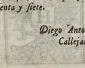 enta y siete.
Diego Anto
Calleja